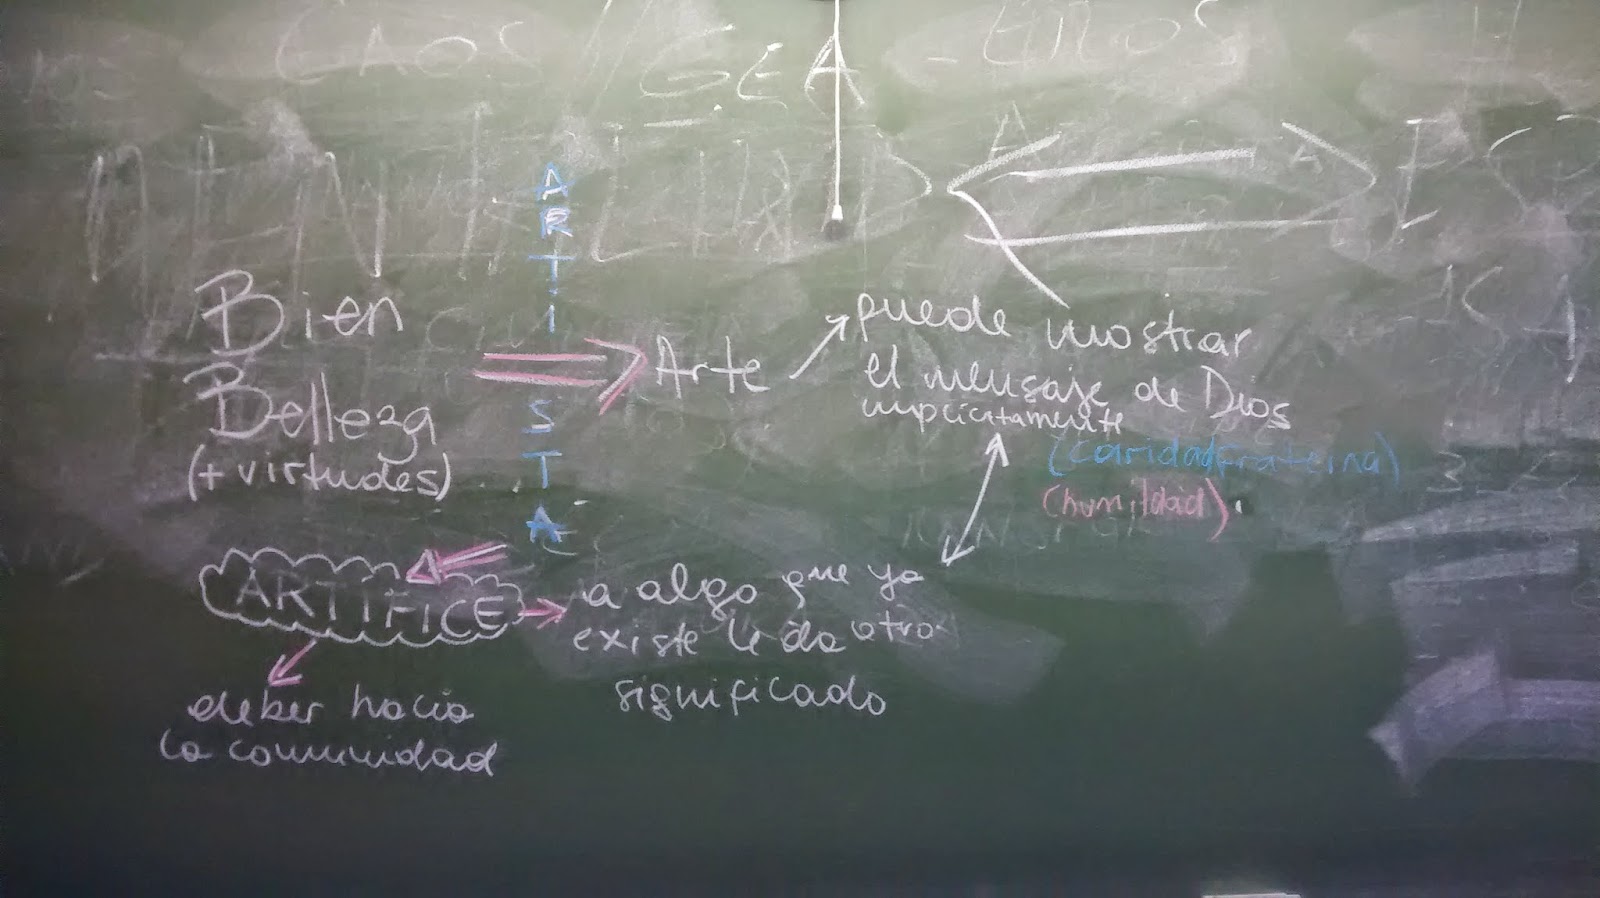 CAOS / GEA - 
ARTISTA
Bien
Belleza
(+ virtudes)
Arte
puede mostrar
el mensaje de Dios
implícitamente
(caridad fraterna)
(humildad)
ARTÍFICE
a algo que ya
existe le da otro
significado
deber hacia
la comunidad